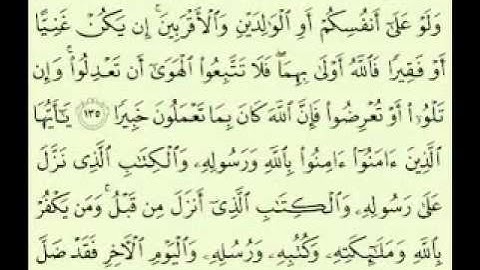 وَلَوْ عَلَىٰٓ أَنفُسِكُمْ أَوِ ٱلْوَٰلِدَيْنِ وَٱلْأَقْرَبِينَ ۚ إِن يَكُنْ غَنِيًّا
أَوْ فَقِيرًا فَٱللَّهُ أَوْلَىٰ بِهِمَا ۖ فَلَا تَتَّبِعُوا۟ ٱلْهَوَىٰٓ أَن تَعْدِلُوا۟ ۚ وَإِن
تَلْوُۥٓا۟ أَوْ تُعْرِضُوا۟ فَإِنَّ ٱللَّهَ كَانَ بِمَا تَعْمَلُونَ خَبِيرًا ١٣٥ يَـٰٓأَيُّهَا
ٱلَّذِينَ ءَامَنُوٓا۟ ءَامِنُوا۟ بِٱللَّهِ وَرَسُولِهِۦ وَٱلْكِتَـٰبِ ٱلَّذِى نَزَّلَ
عَلَىٰ رَسُولِهِۦ وَٱلْكِتَـٰبِ ٱلَّذِىٓ أَنزَلَ مِن قَبْلُ ۚ وَمَن يَكْفُرْ
بِٱللَّهِ وَمَلَـٰٓئِكَتِهِۦ وَكُتُبِهِۦ وَرُسُلِهِۦ وَٱلْيَوْمِ ٱلْـَٔاخِرِ فَقَدْ ضَلَّ